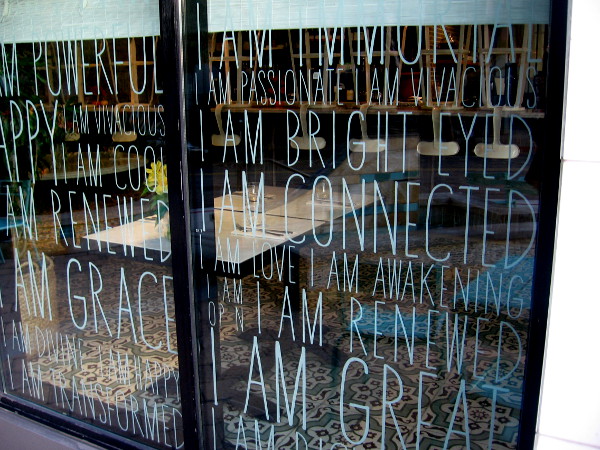 AM POWERFUL
HAPPY I AM VIVACIOUS
I AM COOL
I AM RENEWED
I AM GRACE
I AM DIVINE I AM HAPPY
I AM TRANSFORMED
I AM IMMORTAL
I AM PASSIONATE I AM VIVACIOUS
I AM BRIGHT EYED
I AM CONNECTED
I AM LOVE I AM AWAKENING
I AM OPEN I AM RENEWED
I AM GREAT
I AM